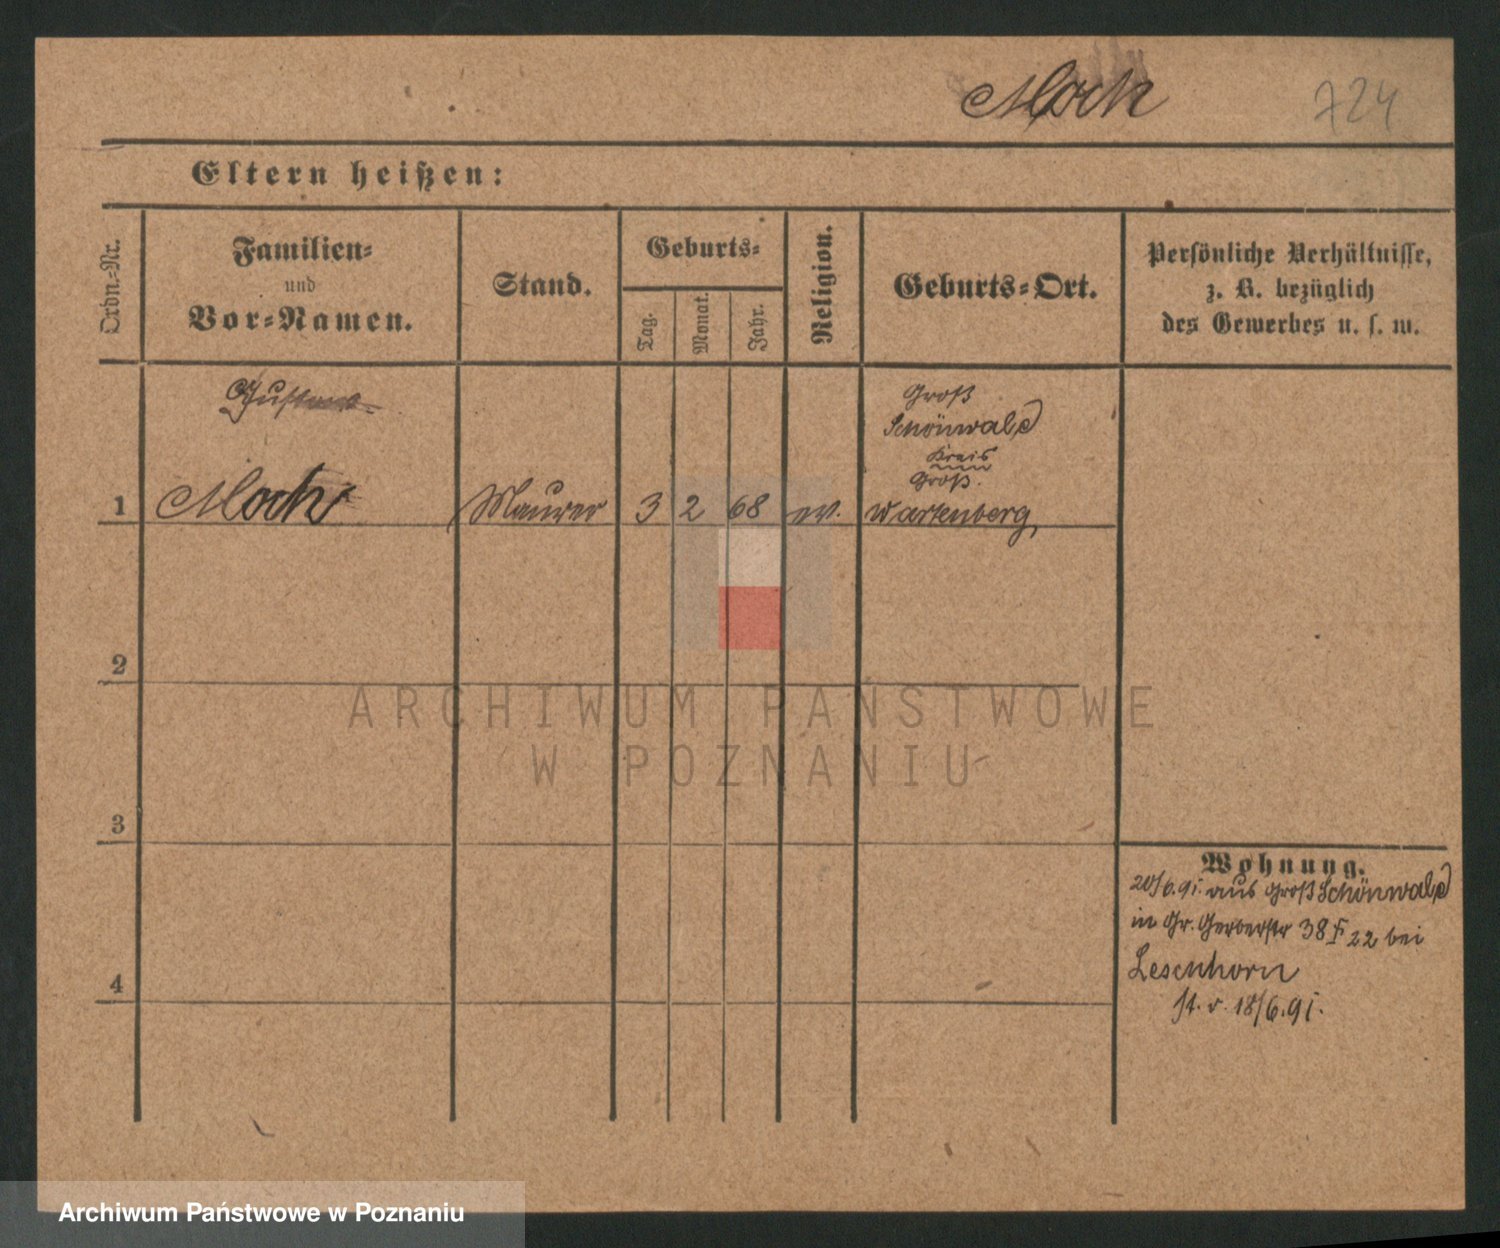 Mock 724
Eltern heißen:
Ordn.-Nr.
Familien-
und
Vor-Namen.
Stand.
Geburts-
Tag.
Monat.
Jahr.
Religion.
Geburts-Ort.
Persönliche Verhältnisse,
z. B. bezüglich
des Gewerbes u. s. w.
Gustav
Groß
Schönwald
Kreis
Groß.
1 Mock Maurer 3 2 68 ev. Wartenberg,
2
ARCHIWUM PAŃSTWOWE
W POZNANIU
3
Wohnung.
20/6.91. aus Groß Schönwald
in Gr. Gerberstr 38 22 bei
Lesenhorn
4
st. v. 18/6.91.
Archiwum Państwowe w Poznaniu